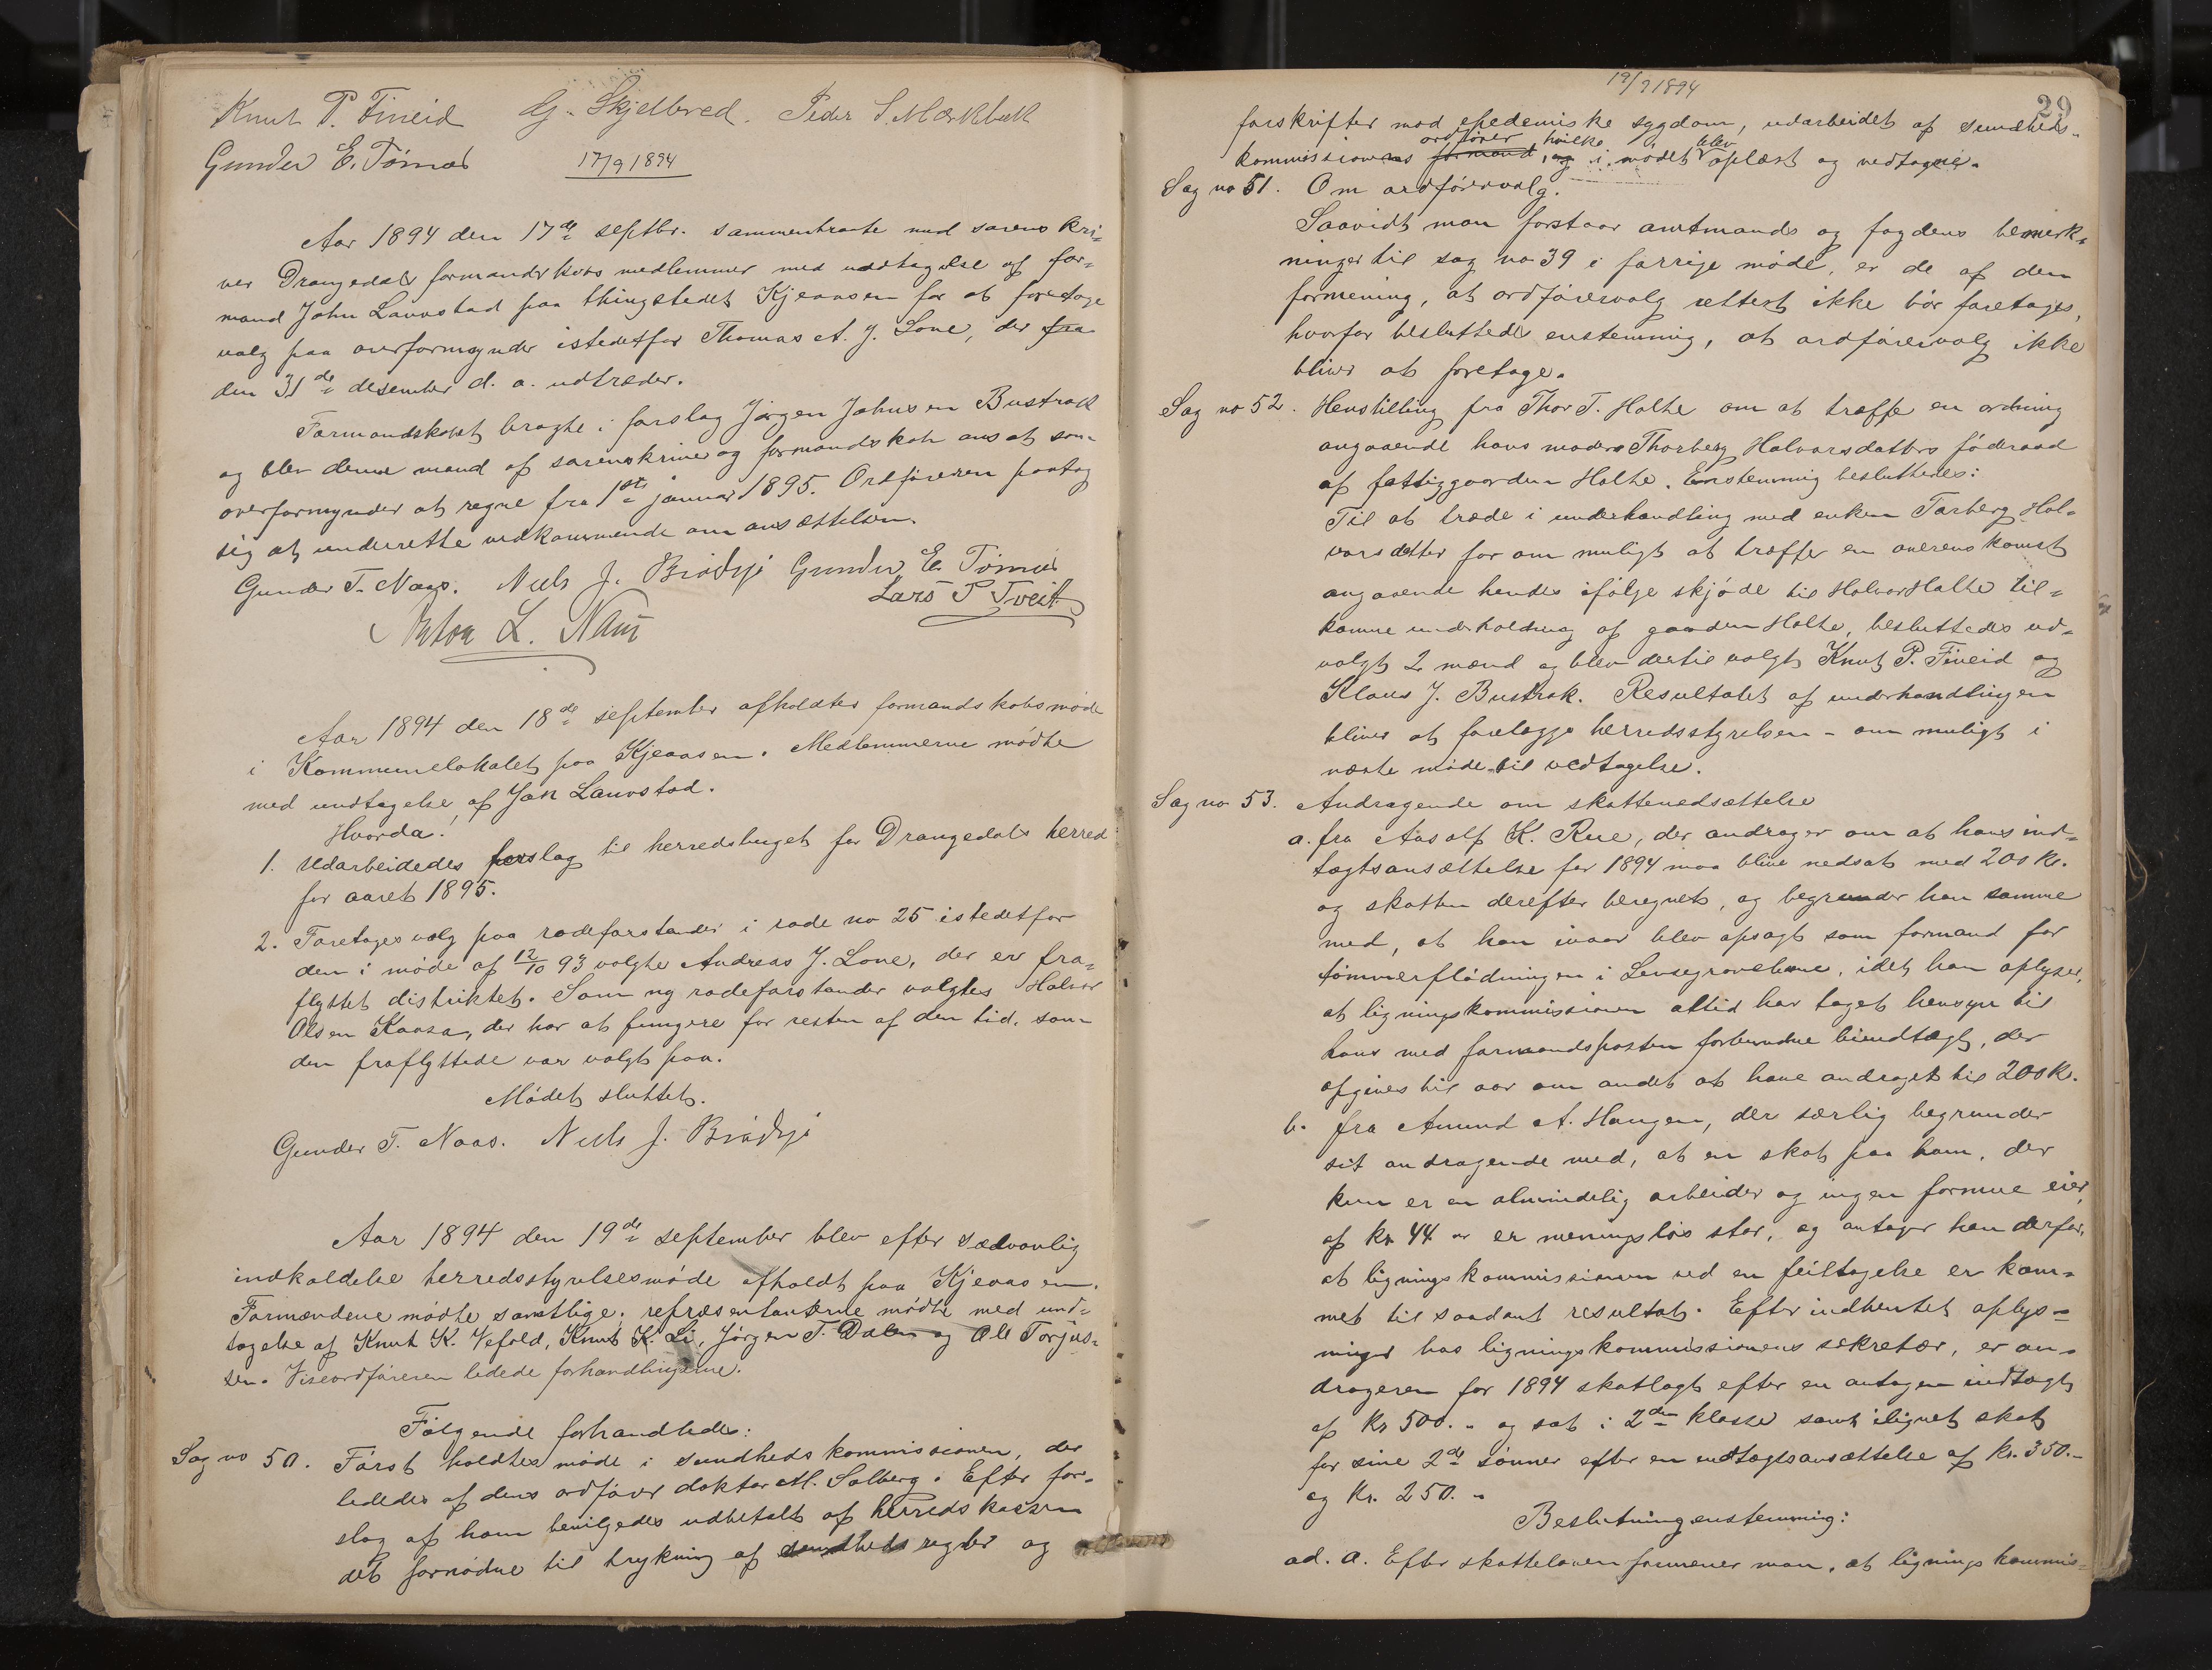 Knut P. Fineid G. Skjelbred. Peder S. Mærkebæk
Gunder E. Tømnes 17/9 1894
Aar 1894 den 17de septbr. sammentraate med sorenskri-
ver Drangedals formandskabs medlemmer med undtagelse af for-
mand John Lauvstad paa thingstedet Kjeaasen for at foretage
valg paa overformynder istedetfor Thomas A. J. Lone, der fra
den 31de desember d. a. udtræder.
Formandskabet bragte i forslag Jørgen Johnsen Bustrak
og blev denne mand af sorenskriver og formandskab ansat som
overformynder at regne fra 1ste januar 1895. Ordføreren paatog
sig at underrette vedkommende om ansættelsen.
Gunder T. Naas. Niels J. Brødsjø Gunder E. Tømnes
Lars P Tveit
Anton L. Naas
Aar 1894 den 18de september afholdtes formandskabsmøde
i Kommunelokalet paa Kjeaasen. Medlemmerne mødte
med undtagelse af Jon Lauvstad.
Hvorda!
1. Udarbeidedes forslag til herredsbuget for Drangedals herred
for aaret 1895.
2. Foretoges valg paa rodeforstander i rode no 25 istedetfor
den i møde af 12/10 93 valgte Andreas J. Lone, der er fra-
flyttet distriktet. Som ny rodeforstander valgtes Halvor
Olsen Kaasa, der har at fungere for resten af den tid, som
den fraflyttede var valgt paa.
Mødet sluttet.
Gunder T. Naas. Niels J. Brødsjø
Aar 1894 den 19de september blev efter sædvanlig
indkaldelse herredsstyrelsesmøde afholdt paa Kjeaasen.
Formændene mødte samtlige, repræsentanterne mødte med und-
tagelse af Knut K. Vefald, Knut K. Li, Jørgen T. Dalen og Ole Torjus-
sen. Viseordføreren ledede forhandlingerne.
Følgende forhandledes:
Sag no 50. Først holdtes møde i sundhedskommissionen, der
lededes af dens ordfører doktor M. Solberg. Efter for-
slag af ham bevilgedes udbetalt af herredskassen
det fornødne til trykning af sundhedsregler og
19/9 1894
29
forskrifter mod epedemiske sygdom, udarbeidet af sundheds-
ordfører hvilke blev
kommissionens formand, og i mødet oplæst og vedtagne.
Sag no 51. Om ordførervalg.
Saavidt man forstaar amtmands og fogdens bemærk-
ninger til sag no 39 i forrige møde, er de af den
formening, at ordførervalg rettest ikke bør foretages,
hvorfor besluttedes enstemmig, at ordførervalg ikke
bliver at foretage.
Sag no 52. Henstilling fra Thor T. Holte om at træffe en ordning
angaaende hans moders Thorberg Halvorsdatters føderaad
af fattiggaarden Holte. Enstemmig besluttedes:
Til at træde i underhandling med enken Torberg Hal-
vorsdatter for om muligt at træffe en overenskomst
angaaende hendes ifølge skjøde til Halvor Holte til-
komne underholdning af gaarden Holte, besluttedes ud-
valgt 2 mænd og blev dertil valgt Knut P. Fineid og
Klaus J. Bustrak. Resultatet af underhandlingen
bliver at forelægge herredsstyrelsen - om muligt i
næste møde til vedtagelse.
Sag no 53. Andragende om skattenedsættelse
a. fra Aasolf K. Rue, der andrager om at hans ind-
tægtsansættelse for 1894 maa blive nedsat med 200 kr.
og skatten derefter beregnet, og begrunder han samme
med, at han ivaar blev opsagt som formand for
tømmerflødningen i , idet han oplyser,
at ligningskommissionen altid har taget hensyn til
hans med formandsposten forbundne biindtægt, der
opgives til aar om andet at have andraget til 200 kr.
b. fra Amund A. Haugen, der særlig begrunder
sit andragende med, at en skat paa ham, der
kun er en almindelig arbeider og ingen formue eier,
af kr 44 " er meningsløs stor, og antager han derfor,
at ligningskommissionen ved en feiltagelse er kom-
met til saadant resultat. Efter indhentet oplys-
ninger hos ligningskommissionens sekretær, er an-
drageren for 1894 skatlagt efter en antagen indtægt
af kr 500.- og sat i 2den klasse samt ilignet skat
for sine 2de sønner efter en indtægtsansættelse af kr. 350.-
og kr. 250.-
Beslutning enstemmig:
ad. a. Efter skatteloven formener man, at ligningskommis-